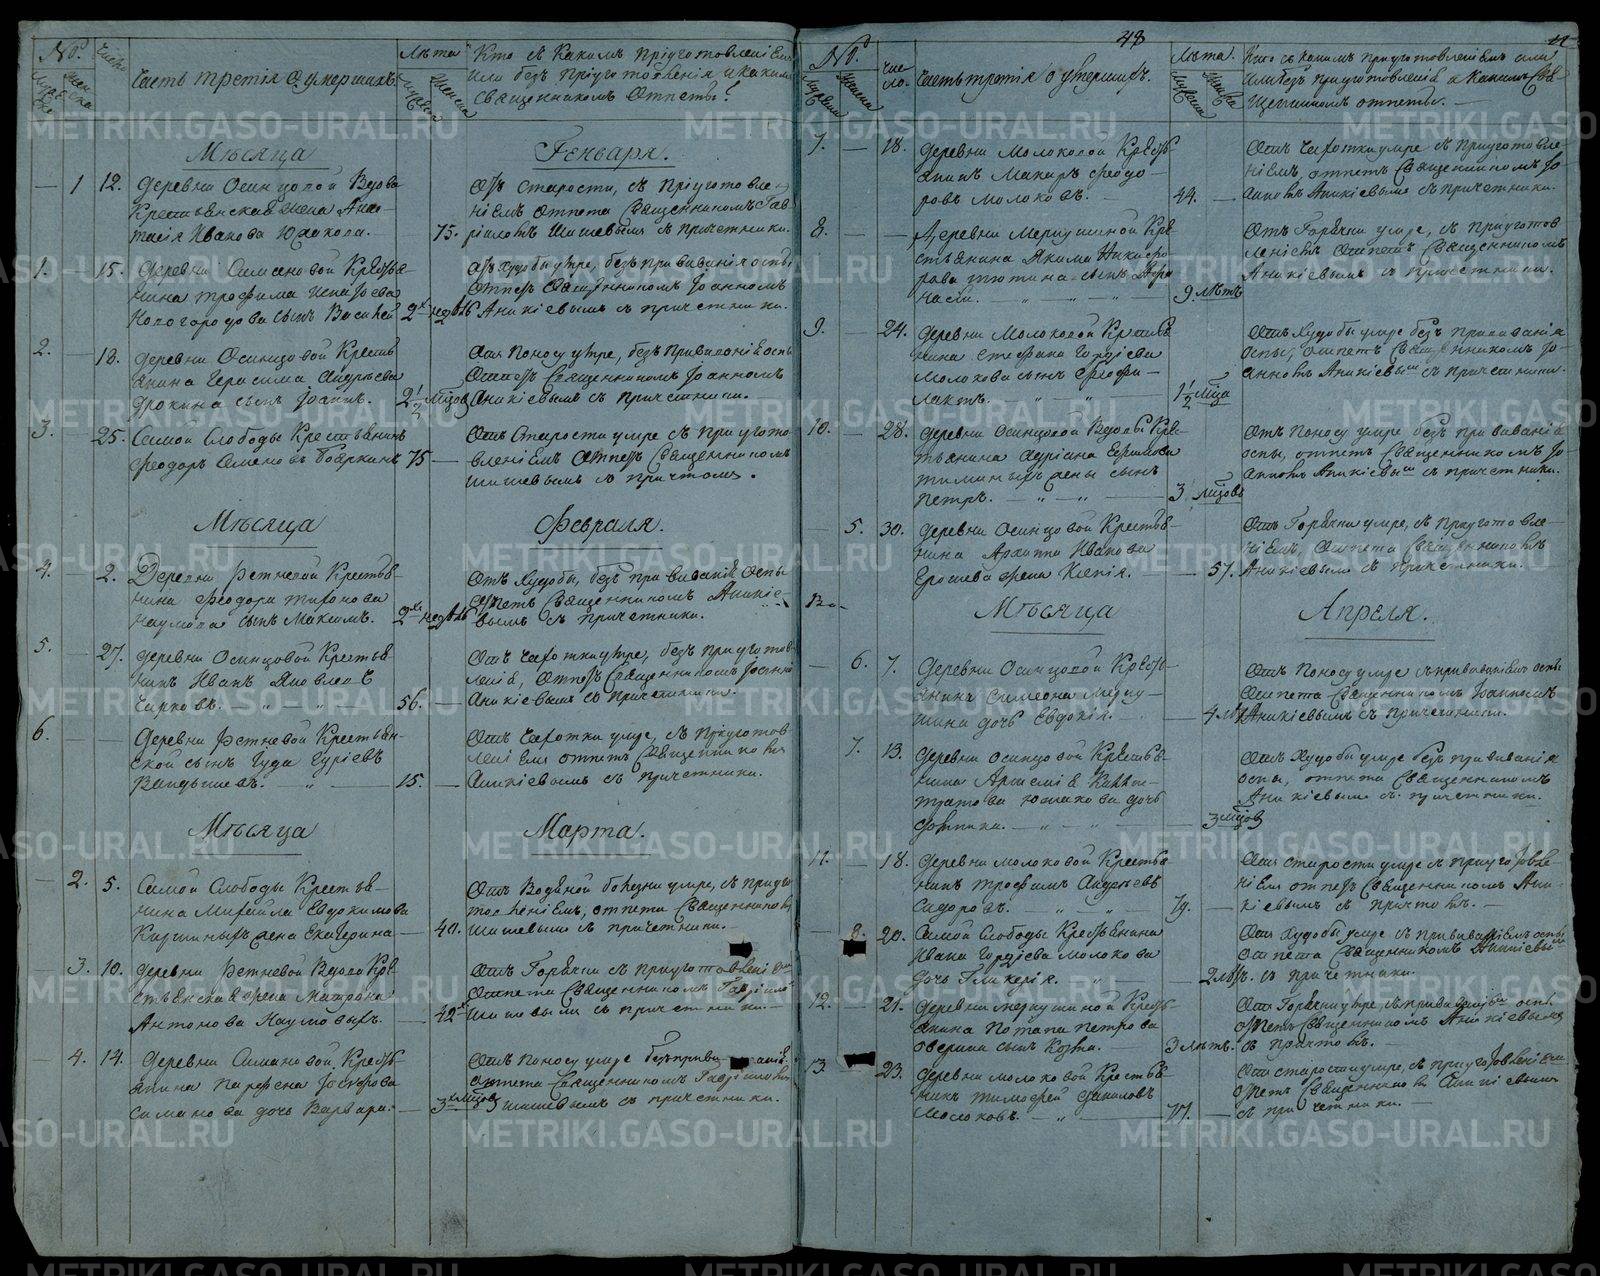 №.
Число
Часть третія О умершихъ.
Лѣта
Кто съ какимъ пріуготовленіемъ
или безъ пріуготовленія и какимъ
Священникомъ Отпеты?
Мѣсяца Генваря.
1 12. Деревни Осинцовой Вдова
Крестьянская жена Ана-
тасія Ивакова Юшкова. 75.
Отъ старости, съ пріуготовле-
ніемъ отпета Священникомъ Гав-
ріиломъ Шишевымъ съ причетники.
1. 15. Деревни Симановой Крестья-
нина трофима Игнатьева
сынъ Василей 2хъ недѣль
отъ худобы умре, безъ прививанія оспы,
Отпетъ Священникомъ Іоанномъ
Аникіевымъ съ причетники.
2. 18. деревни Осинцовой Крестья-
анина Герасима Андреева
сынъ Іоаннъ. 2 1/2 мѣсцовъ
Отъ поносу умре, безъ прививанія оспы
Отпетъ Священникомъ Іоанномъ
Аникіевымъ съ причетники.
3. 25. Самой Слободы Крестьянинъ
Феодоръ Семеновъ 75
Отъ Старости умре съ приугото-
вленіемъ отпетъ Священникомъ
Шишевымъ съ причтомъ.
Мѣсяца Февраля.
4. 2. Деревни Ретневой Крестья-
нина Феодора Тихонова
Наумова сынъ Максимъ. 2хъ недѣль
Отъ Худобы, безъ прививанія Оспы
отпетъ Священникомъ Аникіе-
вымъ съ причетники.
5. 27. деревни Осинцовой Крестья-
нинъ Иванъ Яковлевъ
Чирковъ. 56.
Отъ чахотки умре, безъ приуготов-
ленія, отпетъ Священникомъ Іоанномъ
Аникіевымъ со причетники.
6. Деревни Ретневой Крестьян-
ской сынъ Гуда Гуріевъ
15.
Отъ чахотки умре, съ пріуготов-
леніемъ отпетъ Священникомъ
Аникіевымъ съ причетники.
Мѣсяца Марта.
2. 5. Самой Слободы Крестья-
нина Михайла Евдокимова
жена Екатерина 40.
Отъ Водяной болезни умре, съ приуго-
товленіемъ, отпета Священникомъ
Шишевымъ съ причетники.
3. 10. деревни Ретневой Вдова Кре-
стьянская жена Матрона
Антонова Наумовыхъ. 42
Отъ Горячки съ приуготовленіемъ
Отпета Священникомъ Гавріиломъ
Шишевымъ съ причетники.
4. 14. Деревни Симановой Кресть-
янина Парфена
Симанова дочь Варвара. 3 мѣсцовъ
Отъ поносу умре безъ прививанія
отпета Священникомъ Гавріиломъ
Шишевымъ съ причетники.
48
№.
Число.
Часть третія о умершихъ.
Лѣта.
Кто съ какимъ приуготовленіемъ или
или безъ приуготовленія и какимъ Свя-
щенникомъ отпеты.
7. 18. деревни Молоковой Кресть-
анинъ Макаръ Феодо-
ровъ Молоковъ. 44.
Отъ чахотки умре съ приуготовле-
ніемъ, отпетъ Священникомъ Іо-
анномъ Аникіевымъ съ причетники.
8. Деревни Меркушиной Кре-
стьянина Якима Никифо-
рова сынъ
9. лѣтъ
Отъ Горячки умре, съ приуготов
леніемъ отпетъ Священникомъ
Аникіевымъ съ причетники.
9. 24. деревни Молоковой Крестья-
нина Стефана Гордіева
Молокова сынъ Феофи-
лактъ. 1 1/2 мѣца
Отъ Худобы умре безъ прививанія
оспы, отпетъ Священникомъ Іо-
анномъ Аникіевымъ съ причетники.
10. 28. деревни Осинцовой Вдовы Кре-
стьянина Адріана
жены сынъ
Петръ. 3. мѣсцовъ
Отъ Поносу умре безъ прививанія
оспы, отпетъ Священникомъ Іо-
анномъ Аникіевымъ съ причетники.
5. 30. деревни Осинцовой Крестья-
нина Архиппа Ивакова
жена Ксенія. 57.
Отъ Горячки умре, съ приуготовле-
ніемъ, Отпета Священникомъ
Аникіевымъ съ причетники.
Мѣсяца Апреля.
6. 7. Деревни Осинцовой Кресть-
анина Симеона
дочь Евдокія. 4
Отъ Поносу умре съ прививаніемъ оспы
Отпета Священникомъ Іоанномъ
Аникіевымъ съ причетники.
7. 13. Деревни Осинцовой Крестья-
нина Арсенія
Юшкова дочь
3 мѣсцовъ
Отъ Худобы умре безъ прививанія
оспы, отпета Священникомъ
Аникіевымъ съ причетники.
11. 18. Деревни Молоковой Крестья-
нинъ Трофимъ Андреевъ
Сидоровъ. 79.
Отъ старости умре съ приуготовле-
ніемъ отпетъ Священникомъ Ани-
кіевымъ съ причтомъ.
8. 20. Самой Слободы Крестьянина
Ивана Гордіева Молокова
дочь Гликерія. 2 лѣтъ.
Отъ Худобы умре съ прививаніемъ оспы
Отпета Священникомъ Аникіевымъ
съ причетники.
12. 21. Деревни Меркушиной Кресть-
анина Потапа Петрова
сынъ Козма. 3 лѣтъ.
Отъ Горячки умре, съ прививаніемъ оспы
отпетъ Священникомъ Аникіевымъ
съ причтомъ.
13. 23. Деревни Молоковой Крестья-
нинъ Тимофей Даниловъ
Молоковъ. 77.
Отъ старости умре, съ приуготовленіемъ
отпетъ Священникомъ Аникіевымъ
съ причетники.
METRIKI.GASO-URAL.RU